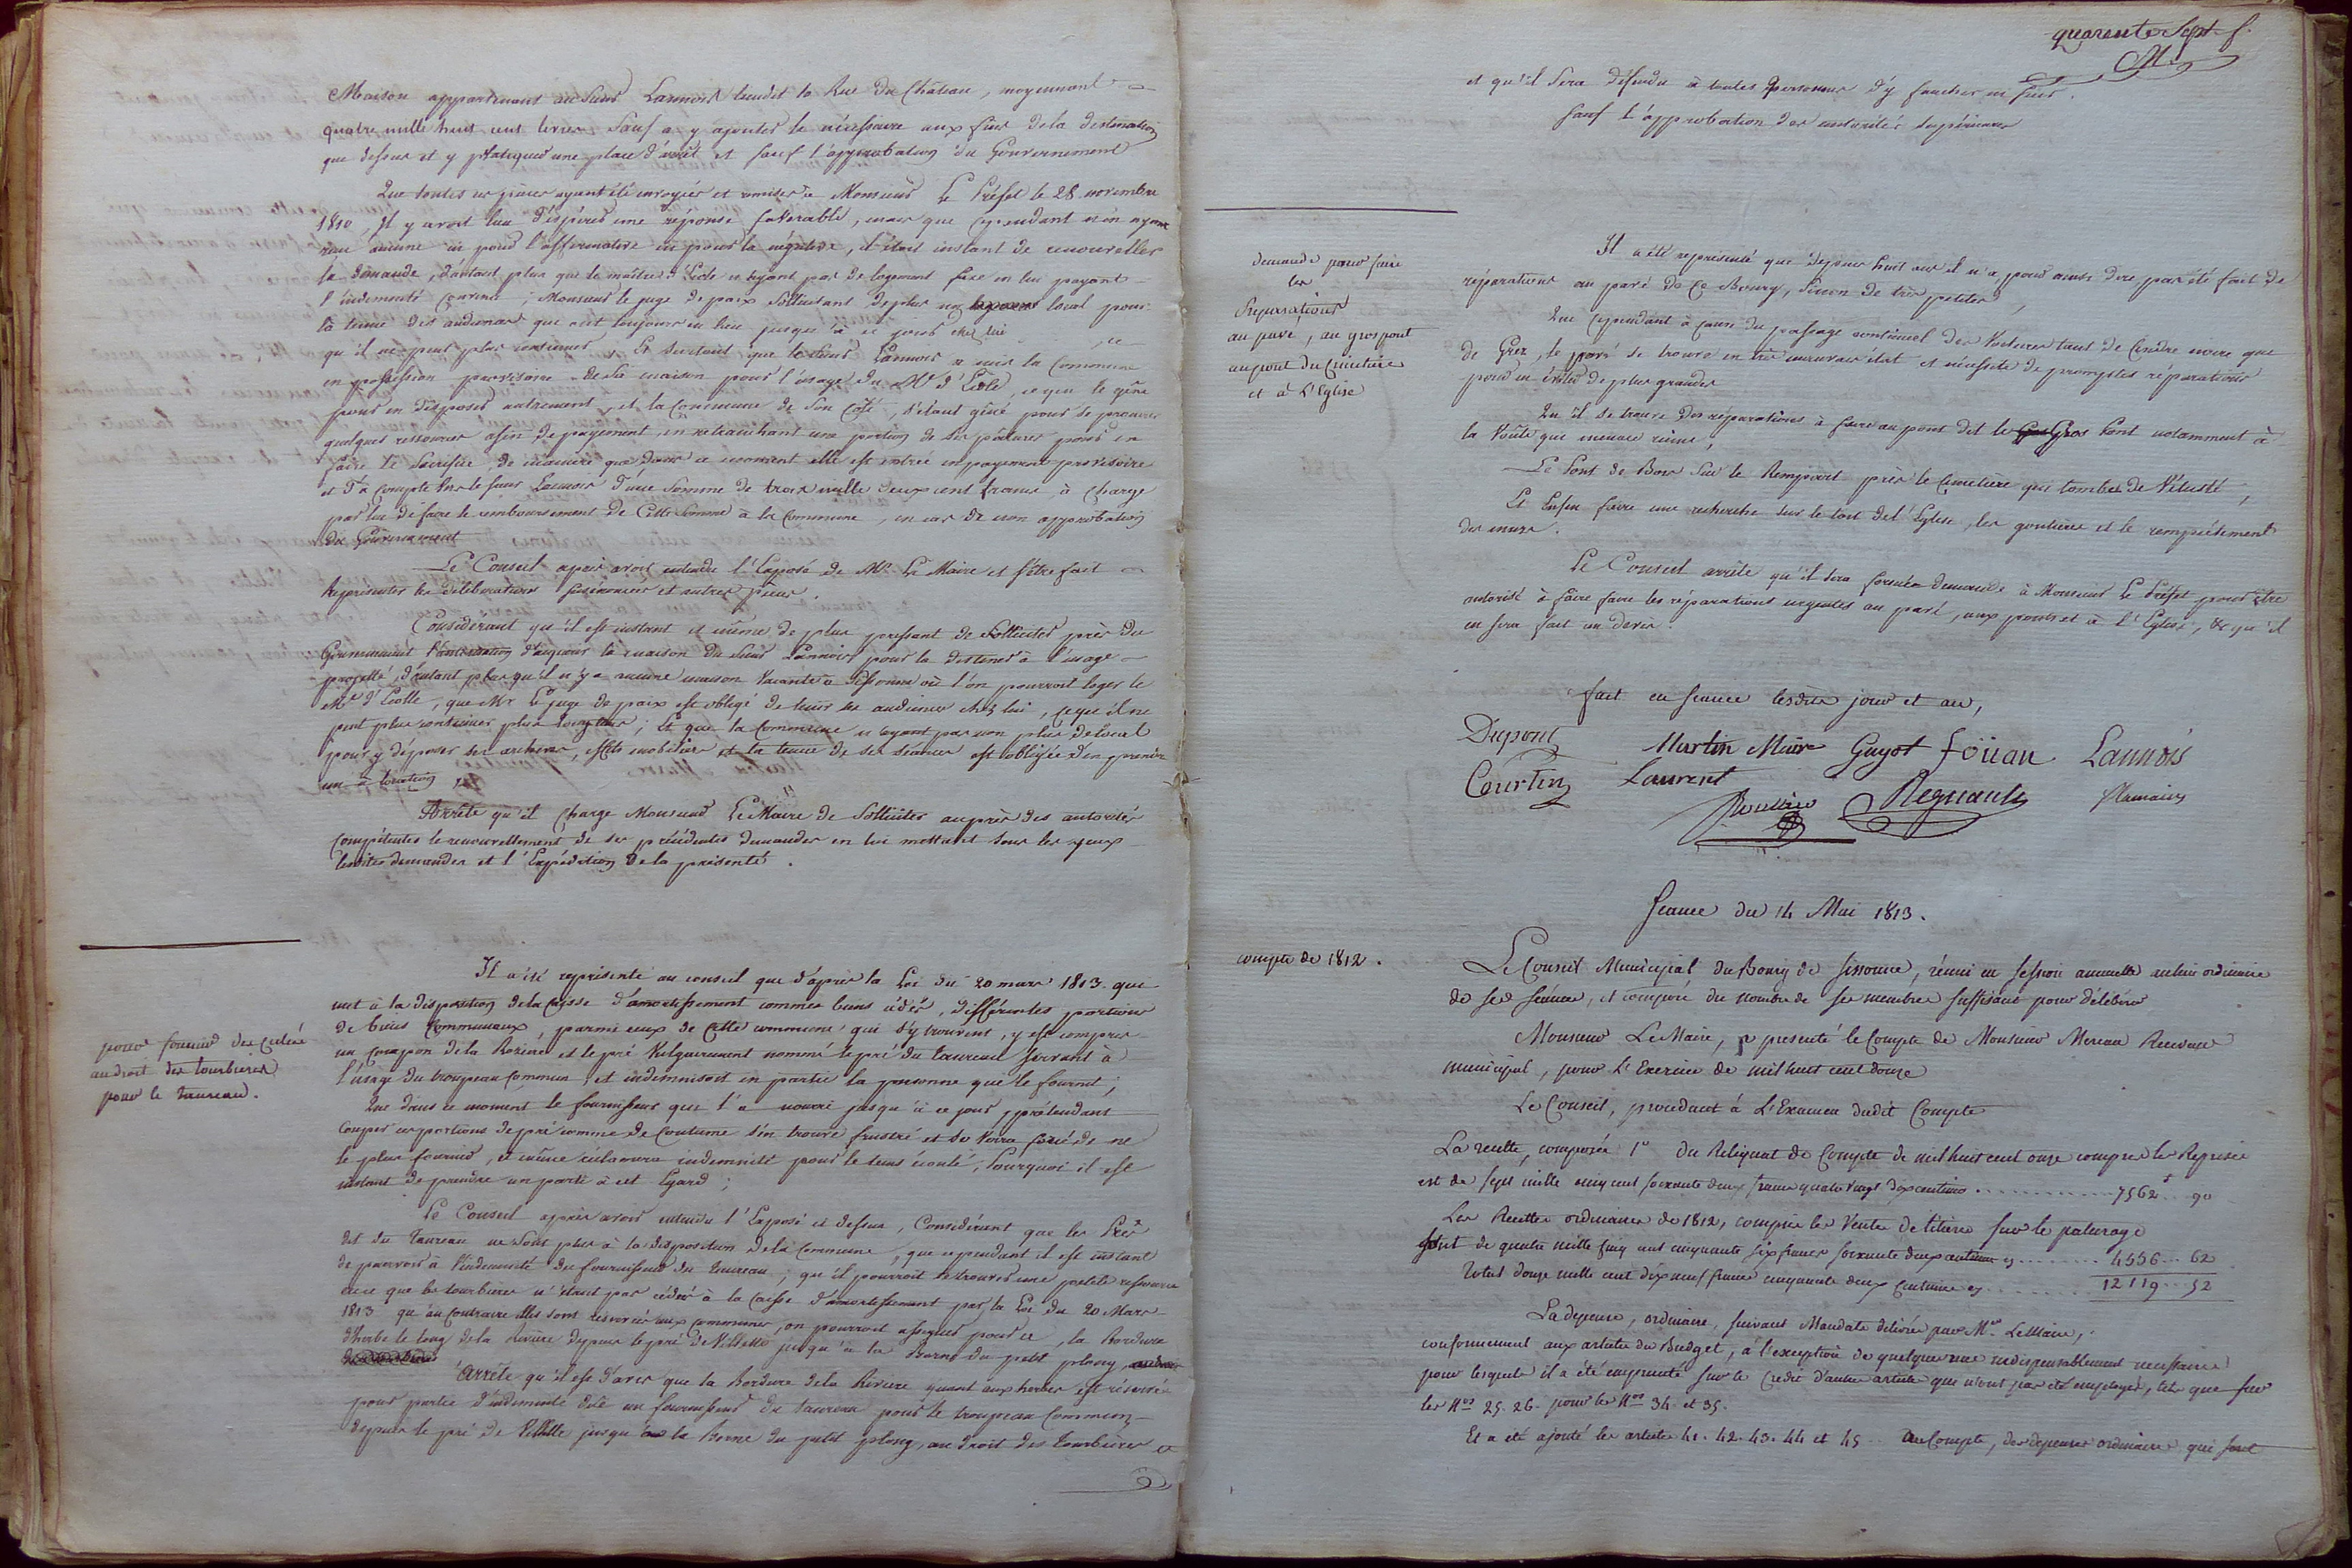 Maison appartenant au Sieur Lannois lieudit la Rue du Château, moyennant
quatre mille huit cent livres Sauf a y ajouter le nécessaire aux fins de la destination
que dessus et y pratiquer une place d'arrêt et sauf l'approbation du Gouvernement
Que toutes ces pièces ayant été envoyées et remises à Monsieur Le Préfet le 28 novembre
1810, Il y avoit lieu d'espérer une réponse favorable, mais que cependant n'en ayant
reçu aucune ni pour l'affirmative ni pour la négative, il étoit instant de renouveller
la demande, d'autant plus que le maître d'Ecole n'ayant pas de logement fixe en lui payant
l'indemnité convenue ; Monsieur le juge de paix Sollicitant de plus un local pour
la tenue des audiences que ont toujours eu lieu jusqu'à ce jour chez lui, ce
qu'il ne peut plus continuer. Et surtout que le Sieur Lannois a mis la Commune
en possession provisoire de Sa maison pour l'usage du Me d'Ecole, ce qui le gêne
pour en disposer autrement, et la Commune de Son côté, s'étant gêné pour se procurer
quelques ressources afin de payement, en retranchant une portion de ses pâtures pour en
faire le Sacrifice, de manière que dans ce moment elle est entrée en payement provisoire
et d'à compte vers le sieur Lannois d'une Somme de trois mille deux cent francs, à charge
par lui de faire le remboursement de Cette Somme à la Commune, en cas de non approbation
du Gouvernement
Le Conseil après avoir entendu l'Exposé de Mr Le Maire et s'être fait
Représenter les délibérations susénoncées et autres pièces,
Considérant qu'il est instant et même de plus pressant de Solliciter près du
Gouvernement l'autorisation d'acquérir la maison du Sieur Lannois pour la destiner à l'usage
projetté, d'autant plus qu'il n'y a aucune maison Vacante à Sissonne où l'on pourroit loger le
Me d'Ecolle, que Mr Le juge de paix est obligé de tenir ses audiences chez lui, ce qu'il ne
peut plus continuer plus longtems ; Et que la Commune n'ayant pas non plus de local
pour y déposer ses archives, effets mobiliers et la tenue de ses séances est obligée d'en prendre
un à location
Arrête qu'il charge Monsieur Le Maire de Solliciter auprès des autorités
compétentes le renouvellement de ses précédentes demandes en lui mettant sous les yeux
lesdites demandes et l'Expédition de la présente.
pour fournir des
au droit des tourbieres
pour le taureau.
Il a été représenté au conseil que d'après la Loi du 20 mars 1813 que
met à la disposition de la Caisse d'amortissement comme biens cédés, différentes portions
de biens Communaux, parmi ceux de Cette commune qui s'y trouvent, y est compris
un coupon de la Rozière et le pré Vulgairement nommé le pré du taureau servant à
l'usage du troupeau Commun et indemnisoit en partie la personne qui le fournit ;
Que dans ce moment le fournisseur qui l'a nourri jusqu'à ce jour prétendant
couper ces portions de pré comme de Coutume s'en trouve frustré et se verra forcé de ne
le plus fournir, et même réclamera indemnité pour le tems écoulé ; Pourquoi il est
instant de prendre un parti à cet Egard ;
Le Conseil après avoir entendu l'Exposé ci dessus, Considérant que les Prés
dit du Taureau ne Sont plus à la disposition de la Commune, que cependant il est instant
de pourvoir à l'indemnité du fournisseur du taureau ; qu'il pourroit se trouver une petite ressource
en ce que les tourbieres n'étant pas cédées à la Caisse d'amortissement par la Loi du 20 Mars
1813 qu'au Contraire elles sont réservées aux communes, on pourroit assigner pour ce, la Bordure
d'herbe le long de la Riviere depuis le pré de Villette jusqu'à la Borne du petit plany,
Arrête qu'il est d'avis que la Bordure de la Riviere quant aux herbes est réservée
pour partie d'indemnité dûe au fournisseur du taureau pour le troupeau Commun
depuis le pré de Villette jusqu'à la Borne du petit plany, au droit des tourbieres
quarante Sept f.
M
et qu'il Sera défendu à toutes Personnes d'y faucher
Sauf l'approbation des autorités supérieures
demande pour faire
les
Réparations
au pavé, au gros pont
au pont du Cimetiere
et à L'Eglise
Il a été représenté que depuis huit ans il n'a pour ainsi dire pas été fait de
réparations au pavé de Ce Bourg, sinon de très petites,
Que Cependant à cause du passage continuel des Voitures tant de Cendre noire que
de Grez, le pavé se trouve en très mauvais état et nécessite de promptes réparations
pour en éviter de plus grandes
Qu'il se trouve des réparations à faire au pont dit le Gros Pont notamment à
la Voûte que menace ruine ;
Le Pont de Bois Sur le Rempart près le Cimetière qui tombe de Vétusté,
Et Enfin faire une recherche sur le toit de l'Eglise, les goutieres et le rempiétement
des murs.
Le Conseil arrête qu'il sera formée demande à Monsieur Le Préfet pour être
autorisé à faire faire les réparations urgentes au pavé, aux ponts et à l'Eglise, & qu'il
en sera fait un devis.
fait en seance lesdits jour et an,
Dupont Martin Maire Guyot foüan Lannois
Courtin Laurent Regnault
Seance du 14 Mai 1813.
compte de 1812.
Le Conseil Municipal du Bourg de Sissonne, réuni en Session annuelle au lieu ordinaire
de Ses Séances, et composé du nombre de Ses membres suffisans pour délibérer
Monsieur Le Maire, a presenté le Compte de Monsieur Mereau Receveur
municipal, pour L'Exercice de mil huit cent douze
Le Conseil, procedant à L'Examen dudit Compte
La recette, composée 1° du Reliquat de Compte de mil huit cent onze compris les Reprises
est de sept mille cinq cent soixante deux francs quatre vingt dix centimes ........ 7562 f 90
Les Recettes ordinaires de 1812, compris les Ventes de litiere sur le paturage
sont de quatre mille cinq cent cinquante six francs soixante deux centimes ....... 4556 .. 62
Total douze mille cent dix neuf francs cinquante deux centimes ....... 12119 .. 52
La depense, ordinaire, suivant Mandats délivrés par Mr. Le Maire,
conformement aux articles du Budget, à l'exception de quelques uns indispensablement necessaires
pour lesquels il a été emprunté sur le Credit d'autres articles que n'ont pas été employés, tels que sur
les Nos 25. 26. pour les Nos 34. et 35.
Et a été ajouté les articles 41. 42. 43. 44 et 45 au Compte, des depenses ordinaires qui sont